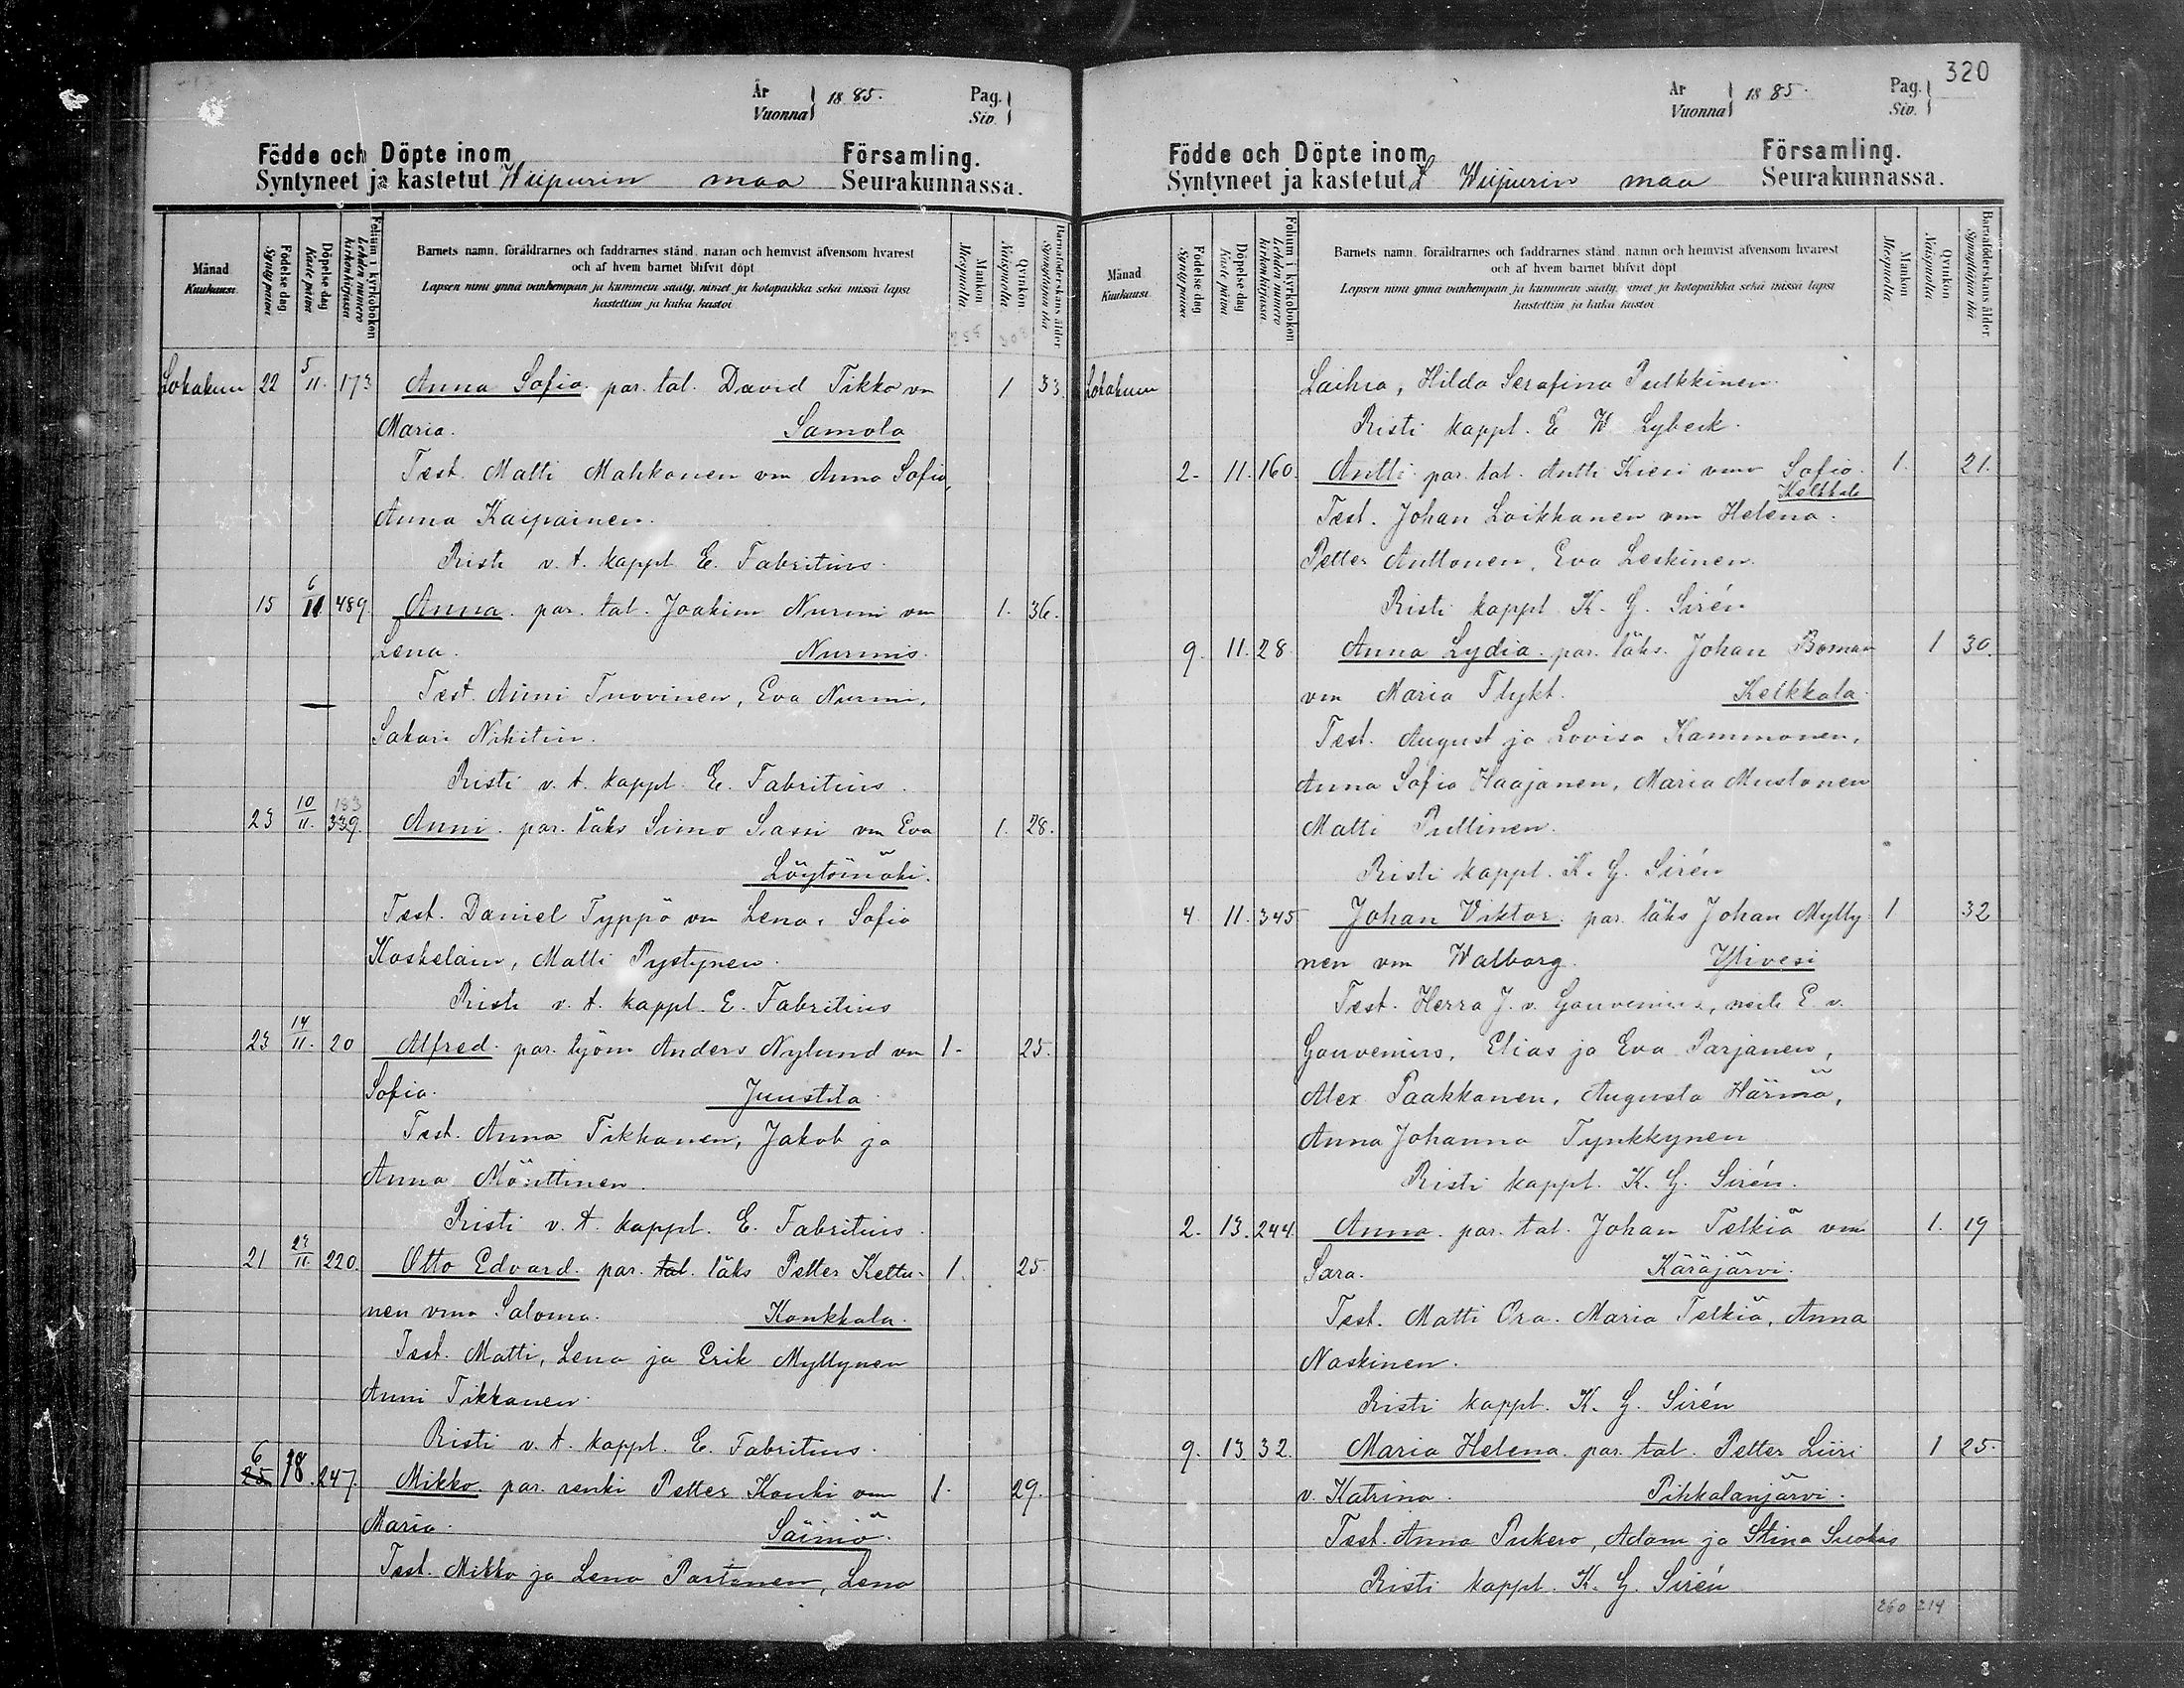 År
Vuonna
1885.
Pag.
Siv.
Födde och Döpte inom Församling.
Syntyneet ja kastetut Wiipurin maa Seurakunnassa.
Månad
Kuukausi.
Födelse dag
Syntypäivä
Döpelse dag
Kastepäivä
Folium i kyrkoboken
Lehden numero kirkonkirjassa
Barnets namn, föräldrarnes och faddrarnes stånd, namn och hemvist äfvensom hvarest
och af hvem barnet blifvit döpt
Lapsen nimi ynnä vanhempain ja kummein sääty, nimet ja kotopaikka sekä missä lapsi
kastettiin ja kuka kastoi
Mankön
Miespuolta
Qvinkön
Naispuolta
Barnaföderskans ålder
Synnyttäjän ikä
Lokakuu 22 5/11. 173 Anna Sofia. par. tal. David Tikka vm 1 33.
Maria. Samola
Test. Matti Mahkonen vm Anna Sofia,
Anna Kaipainen.
Risti v. t. kappl. E. Fabritius.
15 6/11 489. Anna. par. tal. Joakim Nurmi vm 1. 36.
Lena. Nurmis.
Test. Anni Tuovinen, Eva Nurmi,
Sakari Nikitin.
Risti v. t. kappl. E. Fabritius.
183
23 10/11. 339. Anni. par. läks Simo Sassi vm Eva 1. 28.
Löytömäki.
Test. Daniel Typpö vm Lena, Sofia
Koskelain, Matti Pystynen.
Risti v. t. kappl. E. Fabritius
23 14/11. 20 Alfred. par. työm Anders Nylund vm 1. 25.
Sofia. Juustila
Test. Anna Tikkanen, Jakob ja
Anna Mönttinen.
Risti v. t. kappl. E. Fabritius.
21 24/11. 220. Otto Edvard. par. tal. läks Petter Kettu- 1. 25.
nen vmo Saloma. Konkkala.
Test. Matti, Lena ja Erik Myllynen
Anni Tikkanen.
Risti v. t. kappl. E. Fabritius.
6
25 18. 247. Mikko. par. renki Petter Kouki vm 1. 29.
Maria. Säiniö.
Test. Mikko ja Lena Partanen, Lena
320
År
Vuonna
1885.
Pag.
Siv.
Födde och Döpte inom Församling.
Syntyneet ja kastetut Wiipurin maa Seurakunnassa.
Månad
Kuukausi.
Födelse dag
Syntypäivä
Döpelse dag
Kastepäivä
Folium i kyrkoboken
Lehden numero kirkonkirjassa
Barnets namn, föräldrarnes och faddrarnes stånd, namn och hemvist äfvensom hvarest
och af hvem barnet blifvit döpt
Lapsen nimi ynnä vanhempain ja kummein sääty, nimet ja kotopaikka sekä missä lapsi
kastettiin ja kuka kastoi
Mankön
Miespuolta
Qvinkön
Naispuolta
Barnaföderskans ålder
Synnyttäjän ikä
Lokakuu Laihia, Hilda Serafina Pulkkinen.
Risti kappl. E W Lybeck.
2. 11. 160. Antti. par. tal. Antti Kiesi vmo Sofia. 1. 21.
Kelkkala
Test. Johan Laikkanen vm Helena.
Petter Anttonen, Eva Leskinen.
Risti kappl K. G. Sirén
9. 11. 28 Anna Lydia. par. läks. Johan Boman 1 30.
vm Maria Flykt. Kelkkala.
Test. August ja Lovisa Kammonen,
Anna Sofia Haajanen, Maria Mustonen
Matti Pullinen.
Risti kappl. K. G. Sirén
4. 11. 345 Johan Viktor. par. läks Johan Mylly 1 32
nen vm Walborg. Ylivesi
Test. Herra J. v. Gouvenius, neiti E. v.
Gouvenius, Elias ja Eva Parjanen,
Alex Paakkanen, Augusta Härmä,
Anna Johanna Tynkkynen
Risti kappl. K. G. Sirén.
2. 13. 244. Anna. par. tal. Johan Telkiä vm 1. 19
Sara. Käräjärvi.
Test. Matti Ora. Maria Telkiä, Anna
Naskinen.
Risti kappl. K. G. Sirén
9. 13 32. Maria Helena. par. tal. Petter Liiri 1 25.
v. Katrina. Pihkalanjärvi.
Test. Anna Pukero, Adam ja Stina Suokas
Risti kappl. K. G. Sirén
260 214